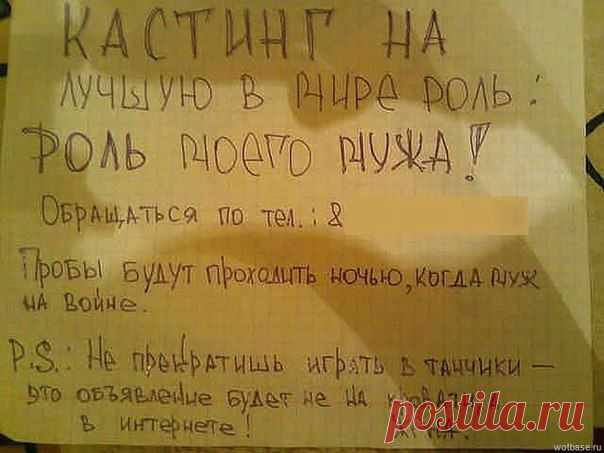 КАСТИНГ НА
ЛУЧШУЮ В МИРЕ РОЛЬ:
РОЛЬ МОЕГО МУЖА!
ОБРАЩАТЬСЯ ПО ТЕЛ.: 8
ПРОБЫ БУДУТ ПРОХОДИТЬ НОЧЬЮ, КОГДА МУЖ
НА ВОЙНЕ.
P.S.: НЕ ПРЕКРАТИШЬ ИГРАТЬ В ТАНЧИКИ –
ЭТО ОБЪЯВЛЕНИЕ БУДЕТ НЕ НА
В ИНТЕРНЕТЕ!
postila.ru
wotbase.ru